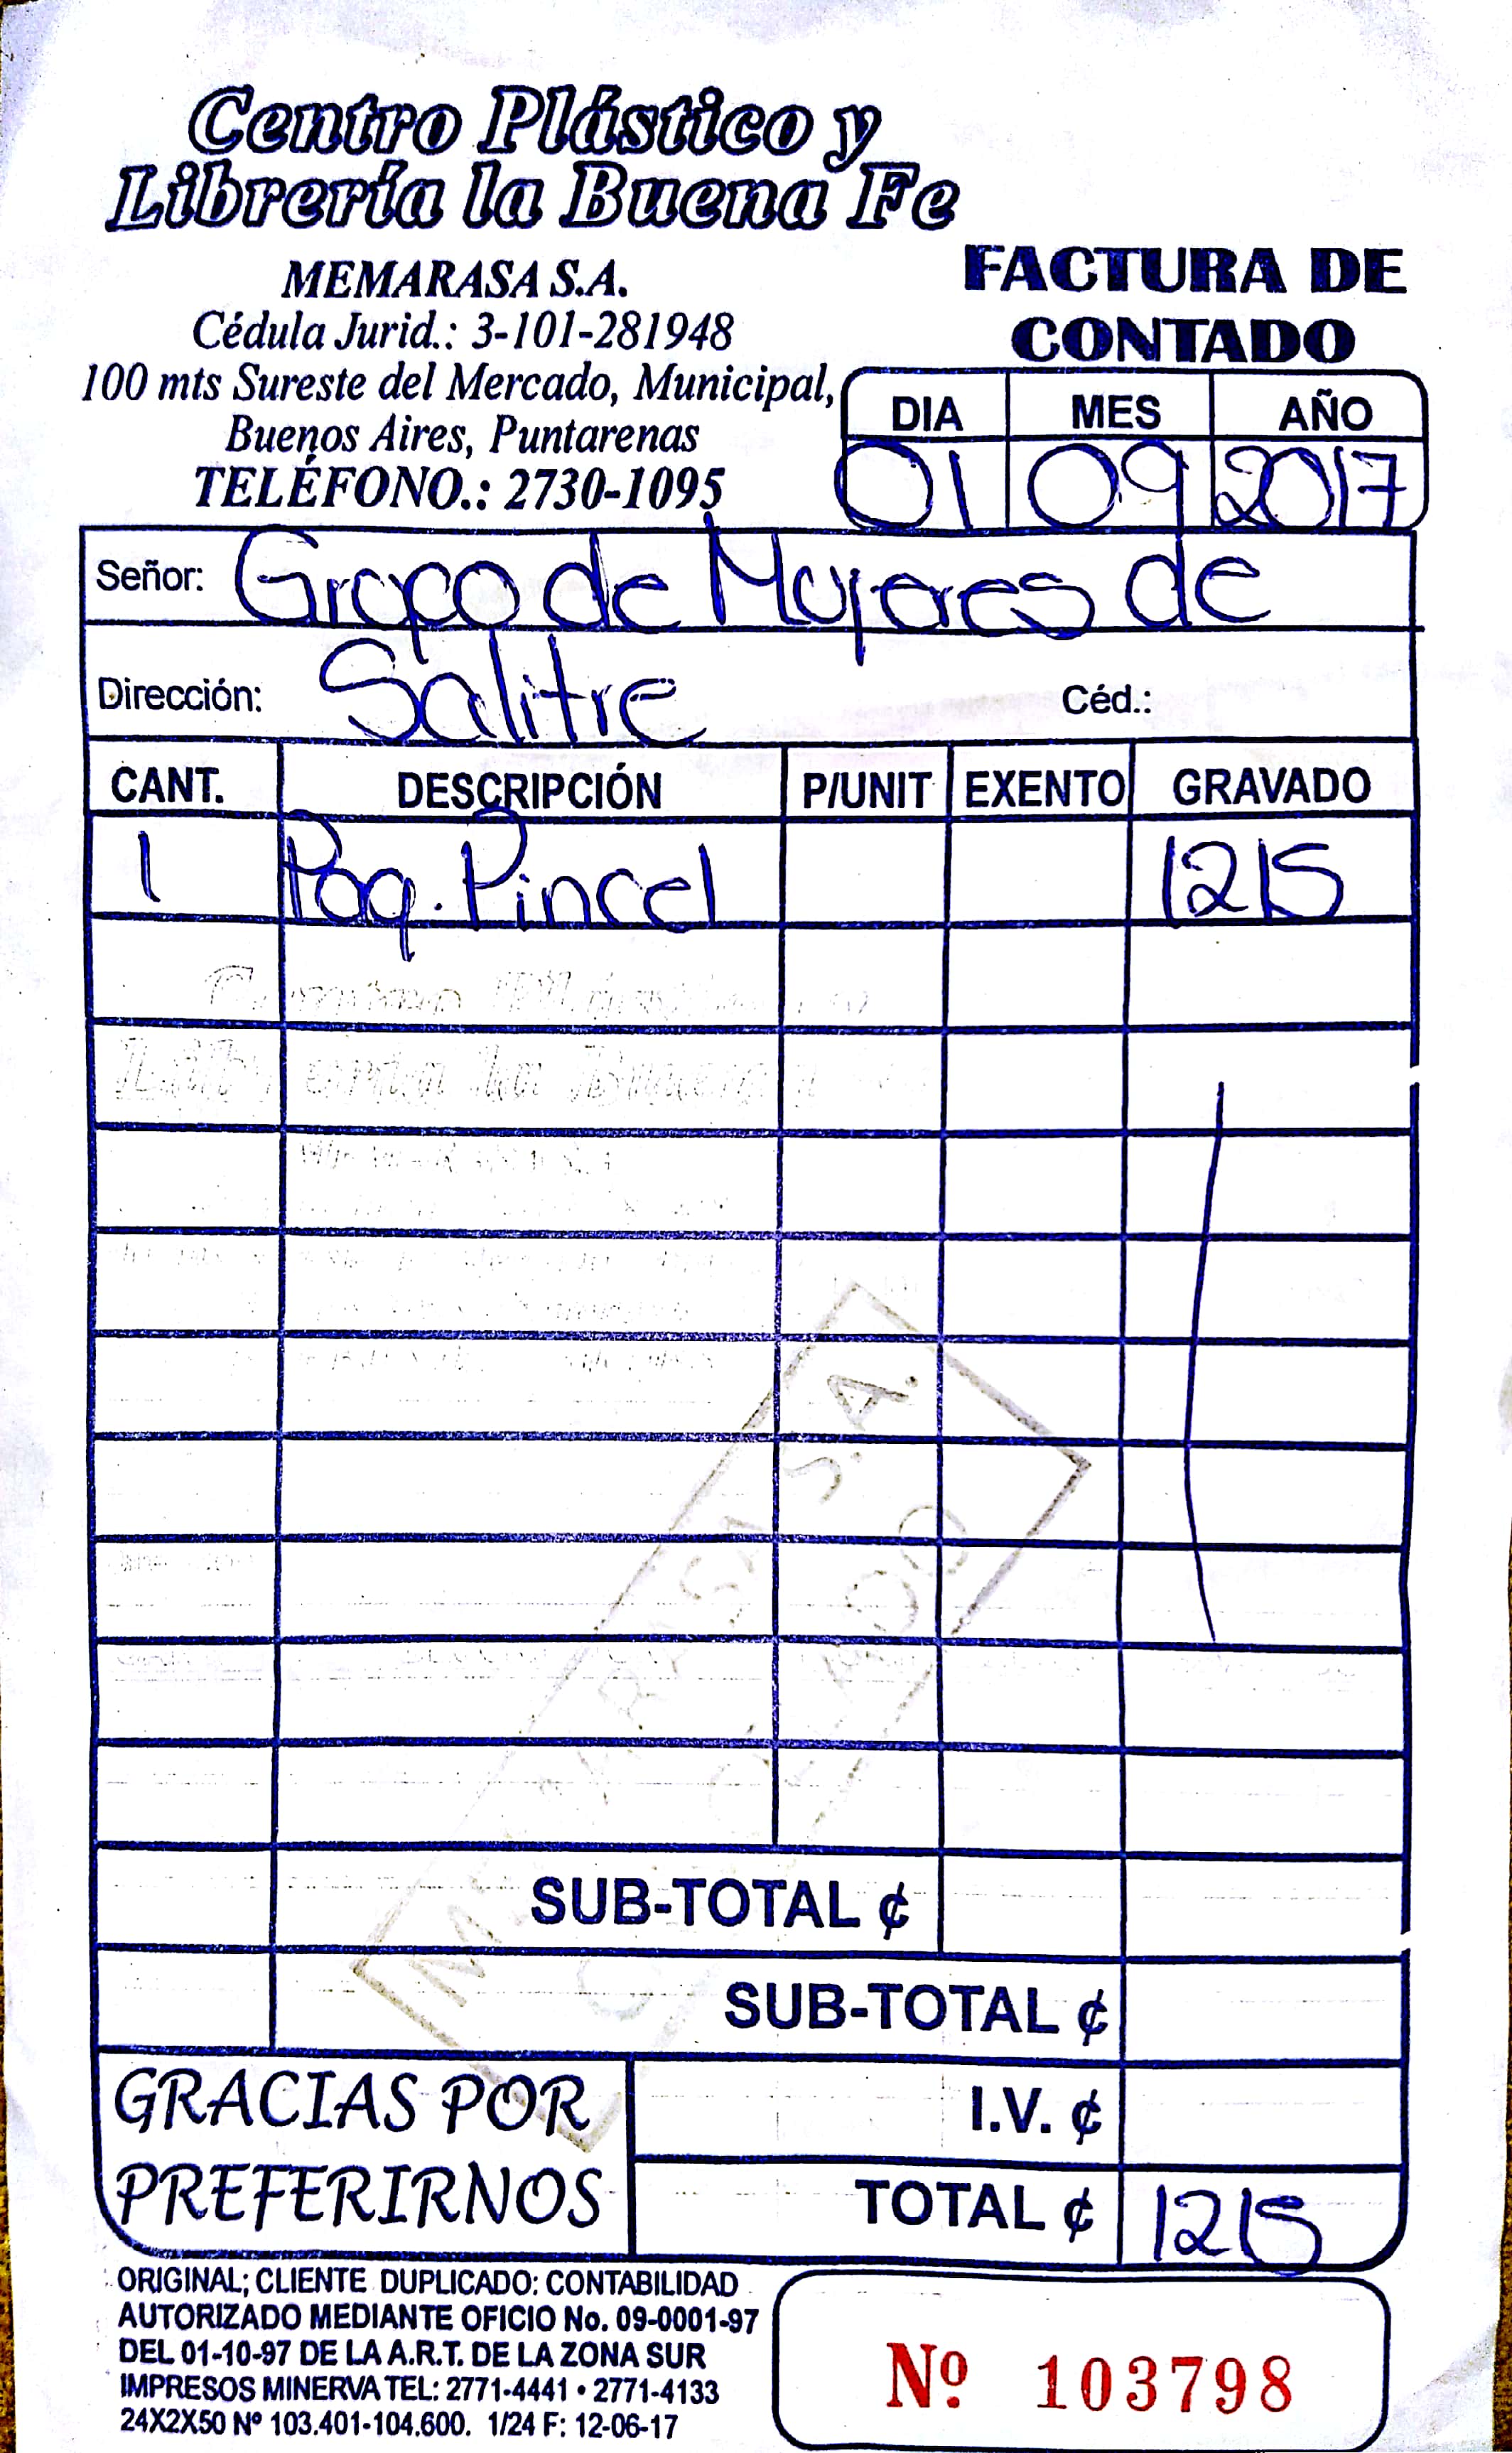 Centro Plástico y
Librería la Buena Fe
MEMARASA S.A.
Cédula Jurid.: 3-101-281948
100 mts Sureste del Mercado, Municipal,
Buenos Aires, Puntarenas
TELÉFONO.: 2730-1095
FACTURA DE
CONTADO
DIA MES AÑO
01 09 2017
Señor: Grupo de Mujeres de
Dirección: Salitre Céd.:
CANT. DESCRIPCIÓN P/UNIT EXENTO GRAVADO
1 Paq. Pincel 1215
S.A.
SUB-TOTAL ¢
SUB-TOTAL ¢
GRACIAS POR
PREFERIRNOS
I.V. ¢
TOTAL ¢ 1215
ORIGINAL; CLIENTE DUPLICADO: CONTABILIDAD
AUTORIZADO MEDIANTE OFICIO No. 09-0001-97
DEL 01-10-97 DE LA A.R.T. DE LA ZONA SUR
IMPRESOS MINERVA TEL: 2771-4441 • 2771-4133
24X2X50 Nº 103.401-104.600. 1/24 F: 12-06-17
Nº 103798